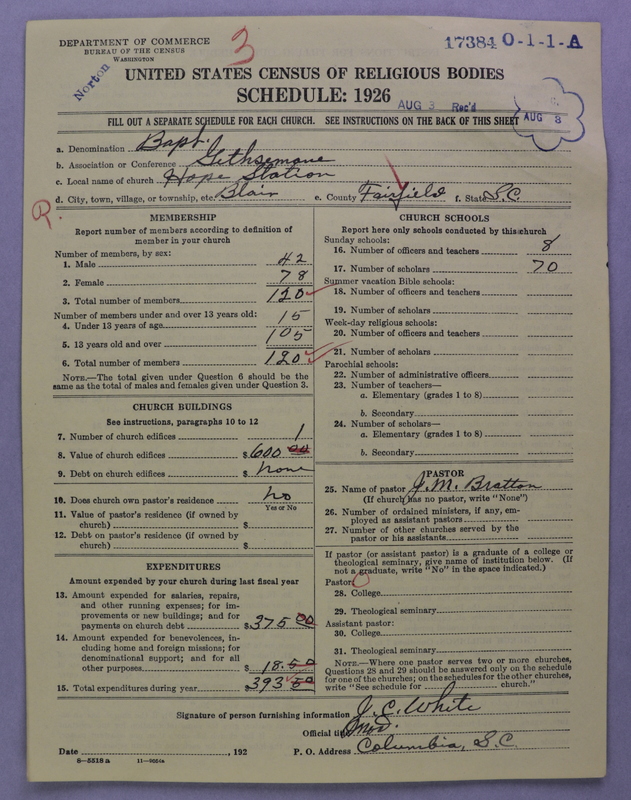 DEPARTMENT OF COMMERCE
BUREAU OF THE CENSUS
WASHINGTON
3
17384 O-1-1-A
Norton
UNITED STATES CENSUS OF RELIGIOUS BODIES
SCHEDULE: 1926
AUG 3 Rec'd
AUG 3
FILL OUT A SEPARATE SCHEDULE FOR EACH CHURCH. SEE INSTRUCTIONS ON THE BACK OF THIS SHEET
a. Denomination Bapt.
b. Association or Conference Gethsemane
c. Local name of church Hope Station
d. City, town, village, or township, etc. Blair e. County Fairfield f. State S.C.
MEMBERSHIP
Report number of members according to definition of
member in your church
Number of members, by sex:
1. Male 42
2. Female 78
3. Total number of members 120
Number of members under and over 13 years old:
4. Under 13 years of age 15
5. 13 years old and over 105
6. Total number of members 120
NOTE.—The total given under Question 6 should be the
same as the total of males and females given under Question 3.
CHURCH BUILDINGS
See instructions, paragraphs 10 to 12
7. Number of church edifices 1
8. Value of church edifices $600 00
9. Debt on church edifices $ none
10. Does church own pastor's residence no
Yes or No
11. Value of pastor's residence (if owned by
church) $
12. Debt on pastor's residence (if owned by
church) $
EXPENDITURES
Amount expended by your church during last fiscal year
13. Amount expended for salaries, repairs,
and other running expenses; for im-
provements or new buildings; and for
payments on church debt $375 00
14. Amount expended for benevolences, in-
cluding home and foreign missions; for
denominational support; and for all
other purposes $18.50
15. Total expenditures during year $393 50
CHURCH SCHOOLS
Report here only schools conducted by this church
Sunday schools:
16. Number of officers and teachers 8
17. Number of scholars 70
Summer vacation Bible schools:
18. Number of officers and teachers
19. Number of scholars
Week-day religious schools:
20. Number of officers and teachers
21. Number of scholars
Parochial schools:
22. Number of administrative officers
23. Number of teachers—
a. Elementary (grades 1 to 8)
b. Secondary
24. Number of scholars—
a. Elementary (grades 1 to 8)
b. Secondary
PASTOR
25. Name of pastor J. M. Bratton
(If church has no pastor, write "None")
26. Number of ordained ministers, if any, em-
ployed as assistant pastors
27. Number of other churches served by the
pastor or his assistants
If pastor (or assistant pastor) is a graduate of a college or
theological seminary, give name of institution below. (If
not a graduate, write "No" in the space indicated.)
Pastor: O
28. College
29. Theological seminary
Assistant pastor:
30. College
31. Theological seminary
NOTE.—Where one pastor serves two or more churches,
Questions 28 and 29 should be answered only on the schedule
for one of the churches; on the schedules for the other churches,
write "See schedule for church."
Signature of person furnishing information J. C. White
Official title Mod.
Date , 192 P. O. Address Columbia, S.C.
8—5518 a